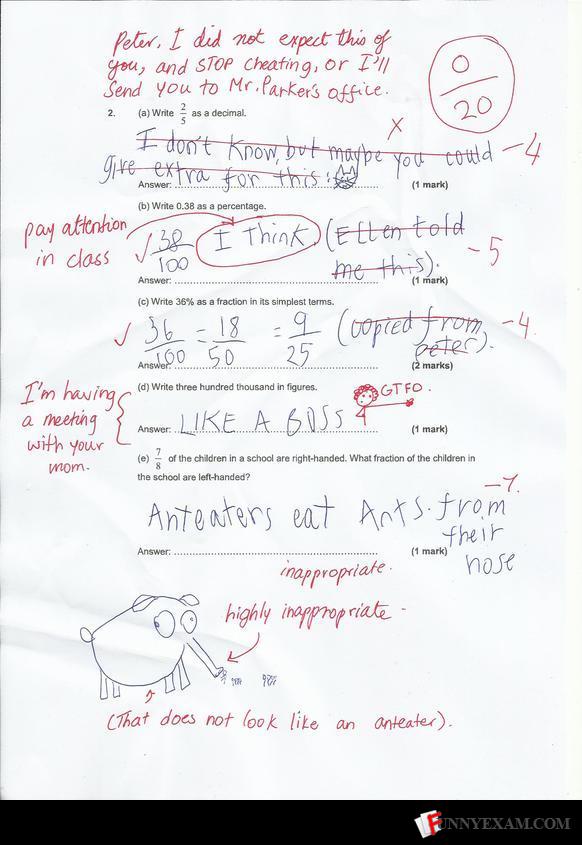 Peter, I did not expect this of
you, and STOP cheating, or I'll
Send you to Mr. Parker's office.
0
20
2. (a) Write 2/5 as a decimal.
X
I don't know, but maybe you could -4
give extra for this:
Answer: (1 mark)
(b) Write 0.38 as a percentage.
pay attention
in class
38/100 I think. (Ellen told
me this). -5
Answer: (1 mark)
(c) Write 36% as a fraction in its simplest terms.
36/100 = 18/50 = 9/25 (copied from -4.
peter).
Answer: (2 marks)
(d) Write three hundred thousand in figures.
GTFO.
I'm having
a meeting
with your
mom.
Answer: LIKE A BOSS (1 mark)
(e) 7/8 of the children in a school are right-handed. What fraction of the children in
the school are left-handed?
-7.
Anteaters eat Ants. from
their
nose
Answer: (1 mark)
inappropriate.
highly inappropriate -
(That does not look like an anteater).
FUNNYEXAM.COM